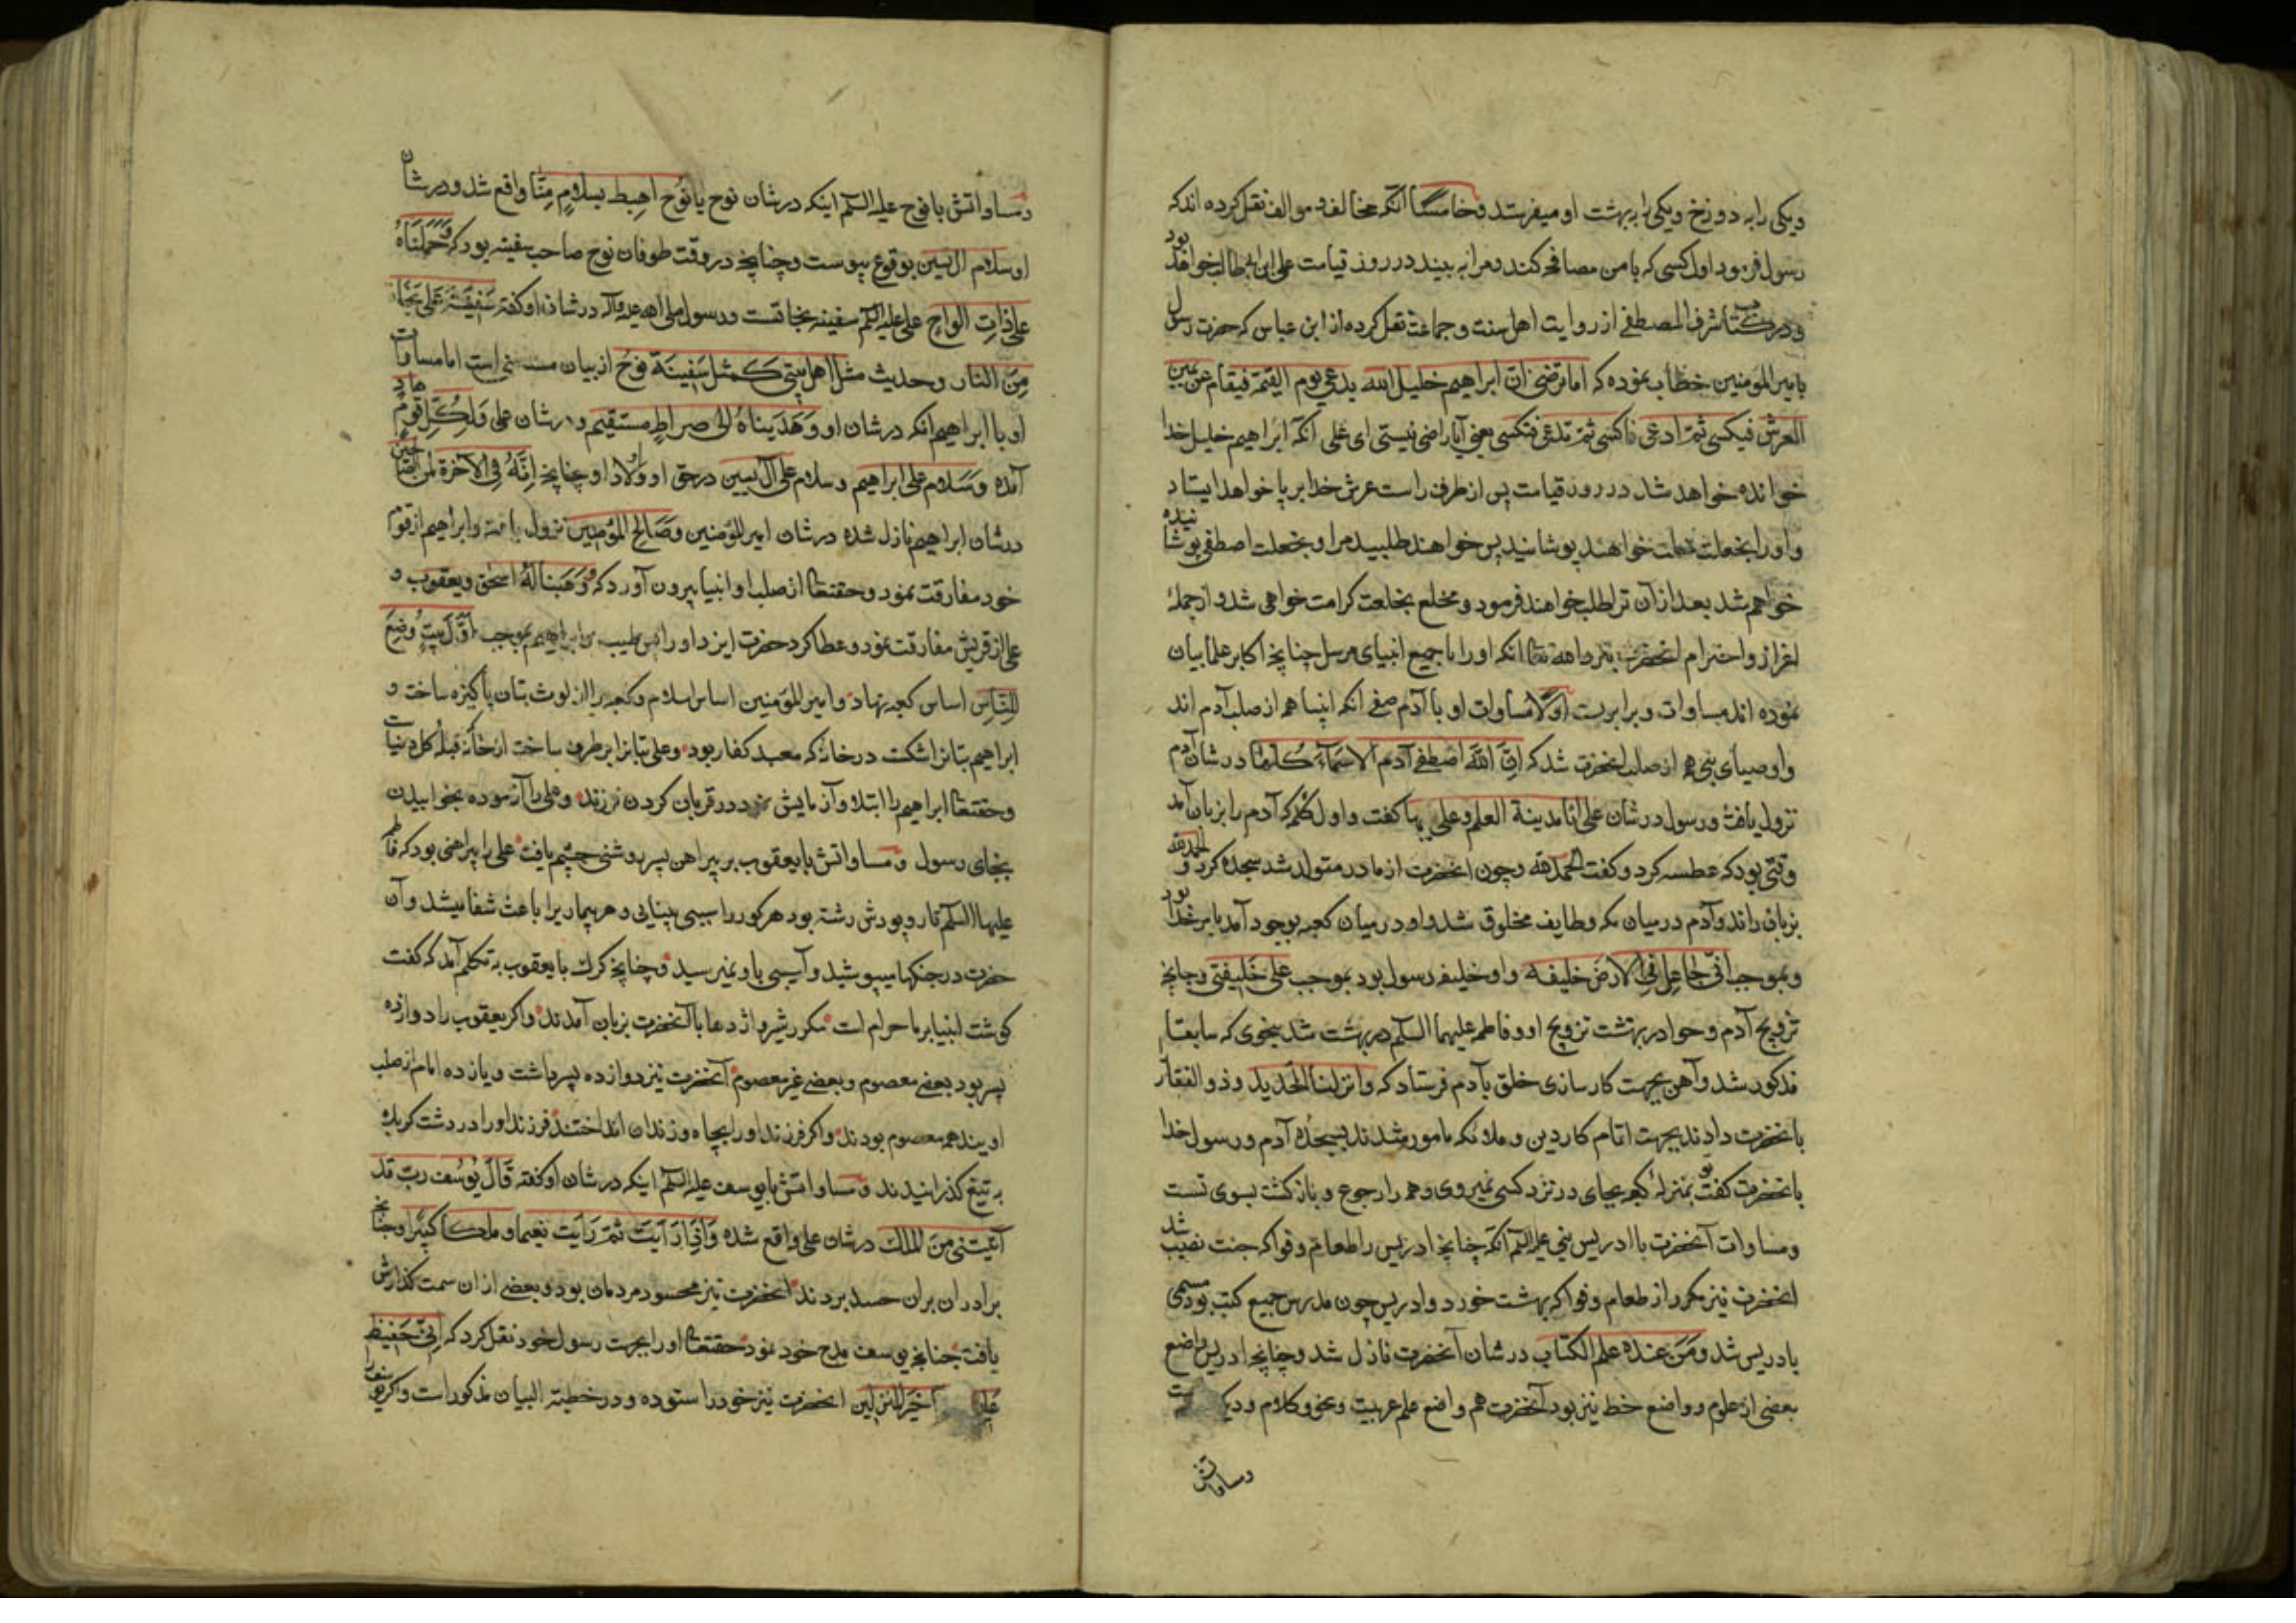 ویکی را به دوزخ ویکی را به بهشت او میفرستد وخامسًا آنکه مخالف و موالف نقل کرده اند که
رسول فرمود اول کسی که با من مصافحه کند و مرا به بیند در روز قیامت علی ابن ابی طالب خواهد بود
و در کتاب شرف المصطفی از روایت اهل سنت و جماعت نقل کرده از ابن عباس که حضرت رسول
بامیر المومنین خطاب نموده که اما ترضی ان ابراهیم خلیل الله یدعی یوم القیمة فیقام عن یمین
العرش فیکسی ثم ادعی فاکسی ثم تدعی فتکسی یعنی آیا راضی نیستی ای علی آنکه ابراهیم خلیل خدا
خوانده خواهد شد در روز قیامت پس از طرف راست عرش خدا بر پا خواهد ایستاد
و او را بخلعت خواهند پوشانید پس خواهند طلبید مرا و بخلعت اصطفی پوشانیده
خواهم شد بعد از آن ترا طلب خواهند فرمود و مخلع بخلعت کرامت خواهی شد و از جملهٔ
اعزاز و احترام آنحضرت نزد الله تعا آنکه او را با جمیع انبیای مرسل چنانچه اکابر علما بیان
نموده اند مساوات و برابریست اولًا مساوات او با آدم صفی آنکه انبیا همه از صلب آدم اند
و اوصیای نبی همه از صلب آنحضرت شد که ان الله اصطفی آدم الاسماء کلها در شان آدم
نزول یافت و رسول در شان علی انا مدینة العلم وعلی بابها گفت و اول کلمه که آدم را بزبان آمد
وقتی بود که عطسه کرد و گفت الحمد لله و چون آنحضرت از مادر متولد شد سجده کرد و الحمد لله
بزبان راند و آدم در میان مکه و طایف مخلوق شد و او در میان کعبه بوجود آمد بامر خدا بود
و بموجب انی جاعل فی الارض خلیفه و او خلیفه رسول بود بموجب علی خلیفتی و چنانچه
تزویج آدم و حوا در بهشت تزویج او و فاطمه علیهما السلم در بهشت شد بنحوی که سابقا
مذکور شد و آهن بجهت کارسازی خلق بآدم فرستاد که وانزلنا الحدید و ذو الفقار
بآنحضرت دادند بجهت اتمام کار دین و ملائکه مامور شدند بسجدهٔ آدم و رسول خدا
بآنحضرت گفت تو بمنزلهٔ کعبهٔ بجای در نزد کسی نمیروی و همه را رجوع و بازگشت بسوی تست
و مساوات آنحضرت با ادریس نبی علیه السلم آنکه چنانچه ادریس را طعام و فواکه جنت نصیب شد
آنحضرت نیز مکرر از طعام و فواکه بهشت خورد و ادریس چون مدرس جمیع کتب بود مسمی
بادریس شد و من عنده علم الکتاب در شان آنحضرت نازل شد و چنانچه ادریس واضع
بعضی از علوم و واضع خط نیز بود آنحضرت هم واضع علم عربیت و نحو و کلام و دیگر
و مساواتش
و مساواتش با نوح علیه السلم اینکه در شان نوح یا نوح اهبط بسلام منا واقع شد و در شان
او سلام آل یسین بوقوع پیوست و چنانچه در وقت طوفان نوح صاحب سفینه بود که وحملناه
علی ذات الواح علی علیه السلم سفینه نجاتست و رسول صلی الله علیه و آله در شان او گفته سفینة علی نجاة
من النار و حدیث مثل اهل بیتی کمثل سفینة نوح از بیان مستغنی است اما مساوات
او با ابراهیم آنکه در شان او وهدیناه الی صراط مستقیم و در شان علی ولکل قوم هاد
آمده وسلام علی ابراهیم و سلام علی آل یسین در حق او و اولاد او چنانچه انه فی الآخرة لمن الصالحین
در شان ابراهیم نازل شده در شان امیر المؤمنین وصالح المؤمنین نزول یافته و ابراهیم از قوم
خود مفارقت نمود و حقتعا از صلب او انبیا بیرون آورد که ووهبنا له اسحق ویعقوب و
علی از قریش مفارقت نمود و عطا کرد حضرت ایزد او را نس طیب و ابراهیم بموجب اول بیت وضع
للناس اساس کعبه نهاد و امیر المؤمنین اساس اسلام و کعبه را از لوث بتان پاکیزه ساخت و
ابراهیم بتانرا شکست در خانهٔ که معبد کفار بود و علی بتانرا بر طرف ساخت از خانهٔ که قبلهٔ کل دنیاست
و حقتعا ابراهیم را ابتلا و آزمایش نمود در قربان کردن فرزند و علی را آزموده بخوابیدن
بجای رسول و مساواتش با یعقوب بر پیراهن پسر روشنی چشم یافت علی را پیراهنی بود که فاطمه
علیها السلم تار و پودش رشته بود هر کور را سبب بینایی و هر بیماریرا باعث شفا میشد و آن
حضرت در جنگها میپوشید و آسیبی باو نمیرسید و چنانچه گرگ با یعقوب به تکلم آمد که گفت
گوشت انبیا بر ما حرام است مکرر شیر و اژدها با آنحضرت بزبان آمدند و اگر یعقوب را دوازده
پسر بود بعضی معصوم و بعضی غیر معصوم آنحضرت نیز دوازده پسر داشت و یازده امام از صلب
اویند همه معصوم بودند و اگر فرزند او را بچاه و زندان انداختند فرزند او را در دشت کربلا
به تیغ گذرانیدند و مساواتش با یوسف علیه السلم اینکه در شان او گفته قال یوسف رب قد
آتیتنی من الملک در شان علی واقع شده واذا رایت ثم رایت نعیما وملکا کبیرا و چنانچه
برادران بران حسد بردند آنحضرت نیز محسود مردمان بود و بعضی از ان سمت گذارش
یافت چنانچه یوسف مدح خود نمود حقتعا او را بجهت رسول خود نقل کرد که انی حفیظ
خیر المنزلین آنحضرت نیز خود را ستوده و در خطبة البیان مذکور است و اگر یوسف را